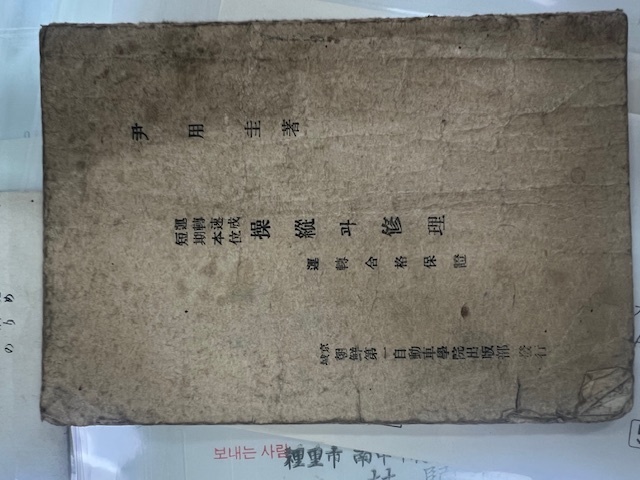 尹用圭著
運轉速成
短期本位
操縱과修理
運轉合格保證
京城 朝鮮第一自動車學院出版部 發行
보내는 사람